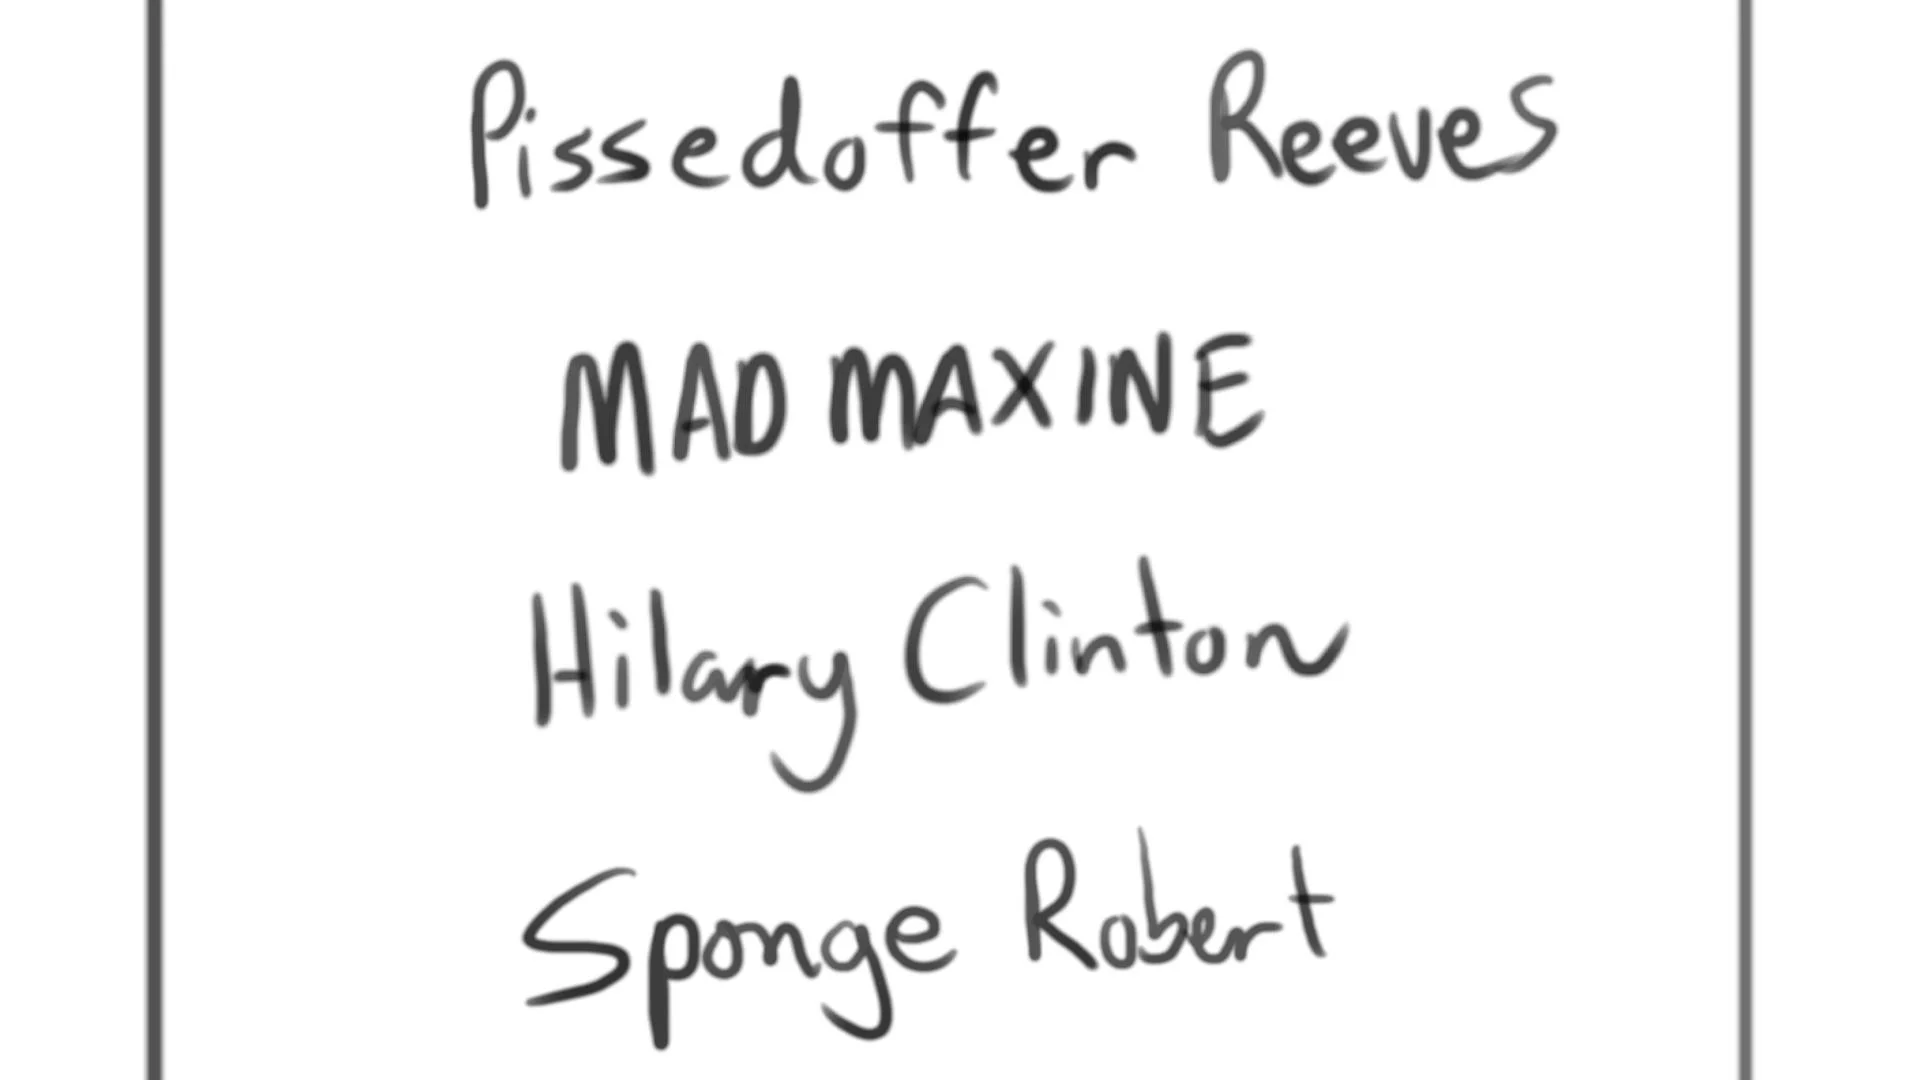 Pissedoffer Reeves
MAD MAXINE
Hilary Clinton
Sponge Robert